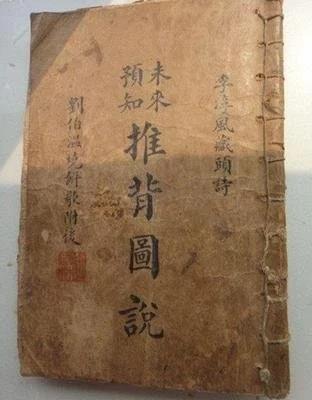 李淳風藏頭詩
未來
預知
推背圖說
劉伯溫燒餅歌附後